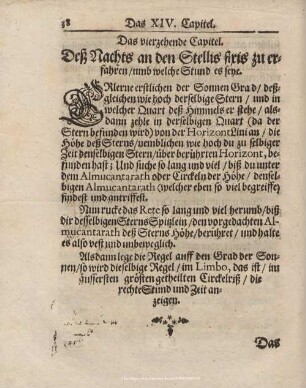 38 Das XIV. Capitel.
Das vierzehende Capitel.
Deß Nachts an den Stellis fixis zu er-
fahren / umb welche Stund es seye.
ERlerne erstlichen der Sonnen Grad / deß-
gleichen wie hoch derselbige Stern / und in
welcher Quart deß Himmels er stehe / als-
dann zehle in derselbigen Quart (da der
Stern befunden wird) von der Horizont Lini an / die
Höhe deß Sterns / nemblichen wie hoch du zu selbiger
Zeit denselbigen Stern / über berührten Horizont, be-
funden hast; Und suche so lang und viel / biß du unter
dem Almucantarath oder Circkeln der Höhe / densel-
bigen Almucantarath (welcher eben so viel begreiffe)
findest und antriffest.
Nun rucke das Rete so lang und viel herumb / biß
dir desselbigen Sterns Spitzlein / den vorgedachten Al-
mucantarath deß Sterns Höhe / berühret / und halte
es also vest und unbeweglich.
Alsdann lege die Regel auff den Grad der Son-
nen / so wird dieselbige Regel / im Limbo, das ist / im
äussersten grösten getheilten Circkelriß / die
rechte Stund und Zeit an-
zeigen.
Das